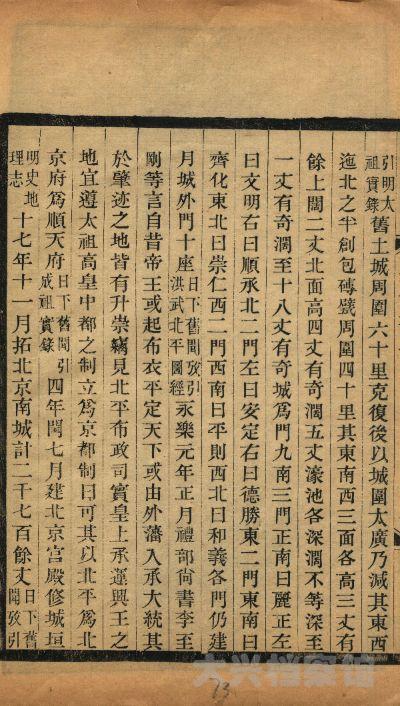 引明太祖實錄舊土城周圍六十里克復後以城圍太廣乃減其東西
迤北之半創包磚甓周圍四十里其東南西三面各高三丈有
餘上闊二丈北面高四丈有奇濶五丈濠池各深濶不等深至
一丈有奇濶至十八丈有奇城爲門九南三門正南曰麗正左
曰文明右曰順承北二門左曰安定右曰德勝東二門東南曰
齊化東北曰崇仁西二門西南曰平則西北曰和義各門仍建
月城外門十座日下舊聞攷引洪武北平圖經永樂元年正月禮部尙書李至
剛等言自昔帝王或起布衣平定天下或由外藩入承大統其
於肇迹之地皆有升崇竊見北平布政司實皇上承運興王之
地宜遵太祖高皇中都之制立爲京都制曰可其以北平爲北
京府爲順天府日下舊聞引成祖實錄四年閏七月建北京宮殿修城垣
明史地理志十七年十一月拓北京南城計二千七百餘丈日下舊聞攷引
大兴档案馆
13